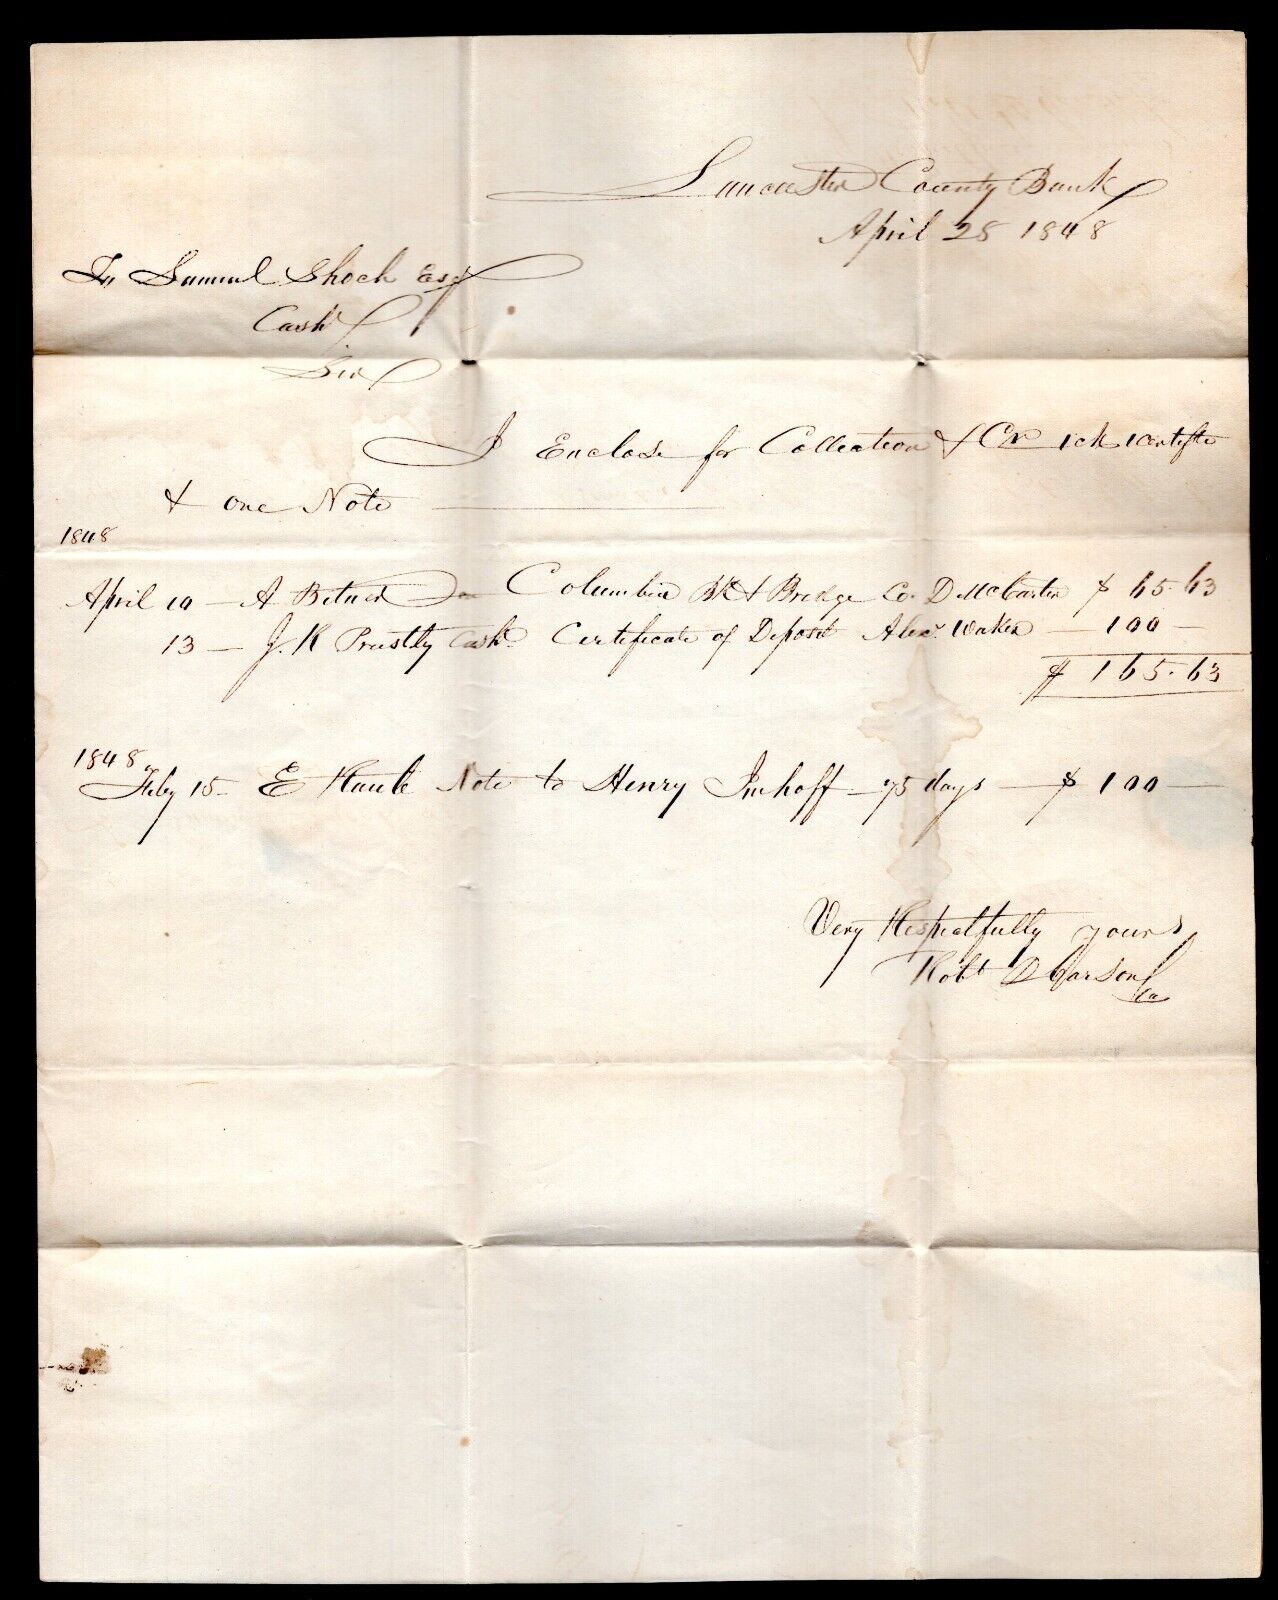 Lancaster County Bank
April 28 1848
To Samuel Shock Esq
Cash
Sir
I Enclose for Collection & Cr 1 ck 1 Certifte
& one Note
1848
April 10 — A Bitner on Columbia Bk & Bridge Co. D McCarter $ 65.63
13 — J. K Priestly Cash. Certificate of Deposit Alexr. — 100 —
$ 165.63
1848
Feby 15 — E Hauk Note to Henry Imhoff — 75 days — $ 100 —
Very Respectfully yours
Robt D Carson Ca